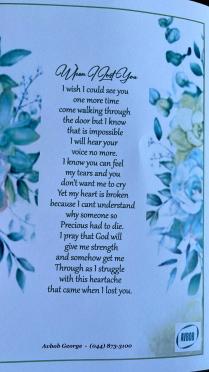 When I Lost You
I wish I could see you
one more time
come walking through
the door but I know
that is impossible
I will hear your
voice no more.
I know you can feel
my tears and you
don't want me to cry
Yet my heart is broken
because I cant understand
why someone so
Precious had to die.
I pray that God will
give me strength
and somehow get me
Through as I struggle
with this heartache
that came when I lost you.
AVBOB
Avbob George - (044) 873-3100